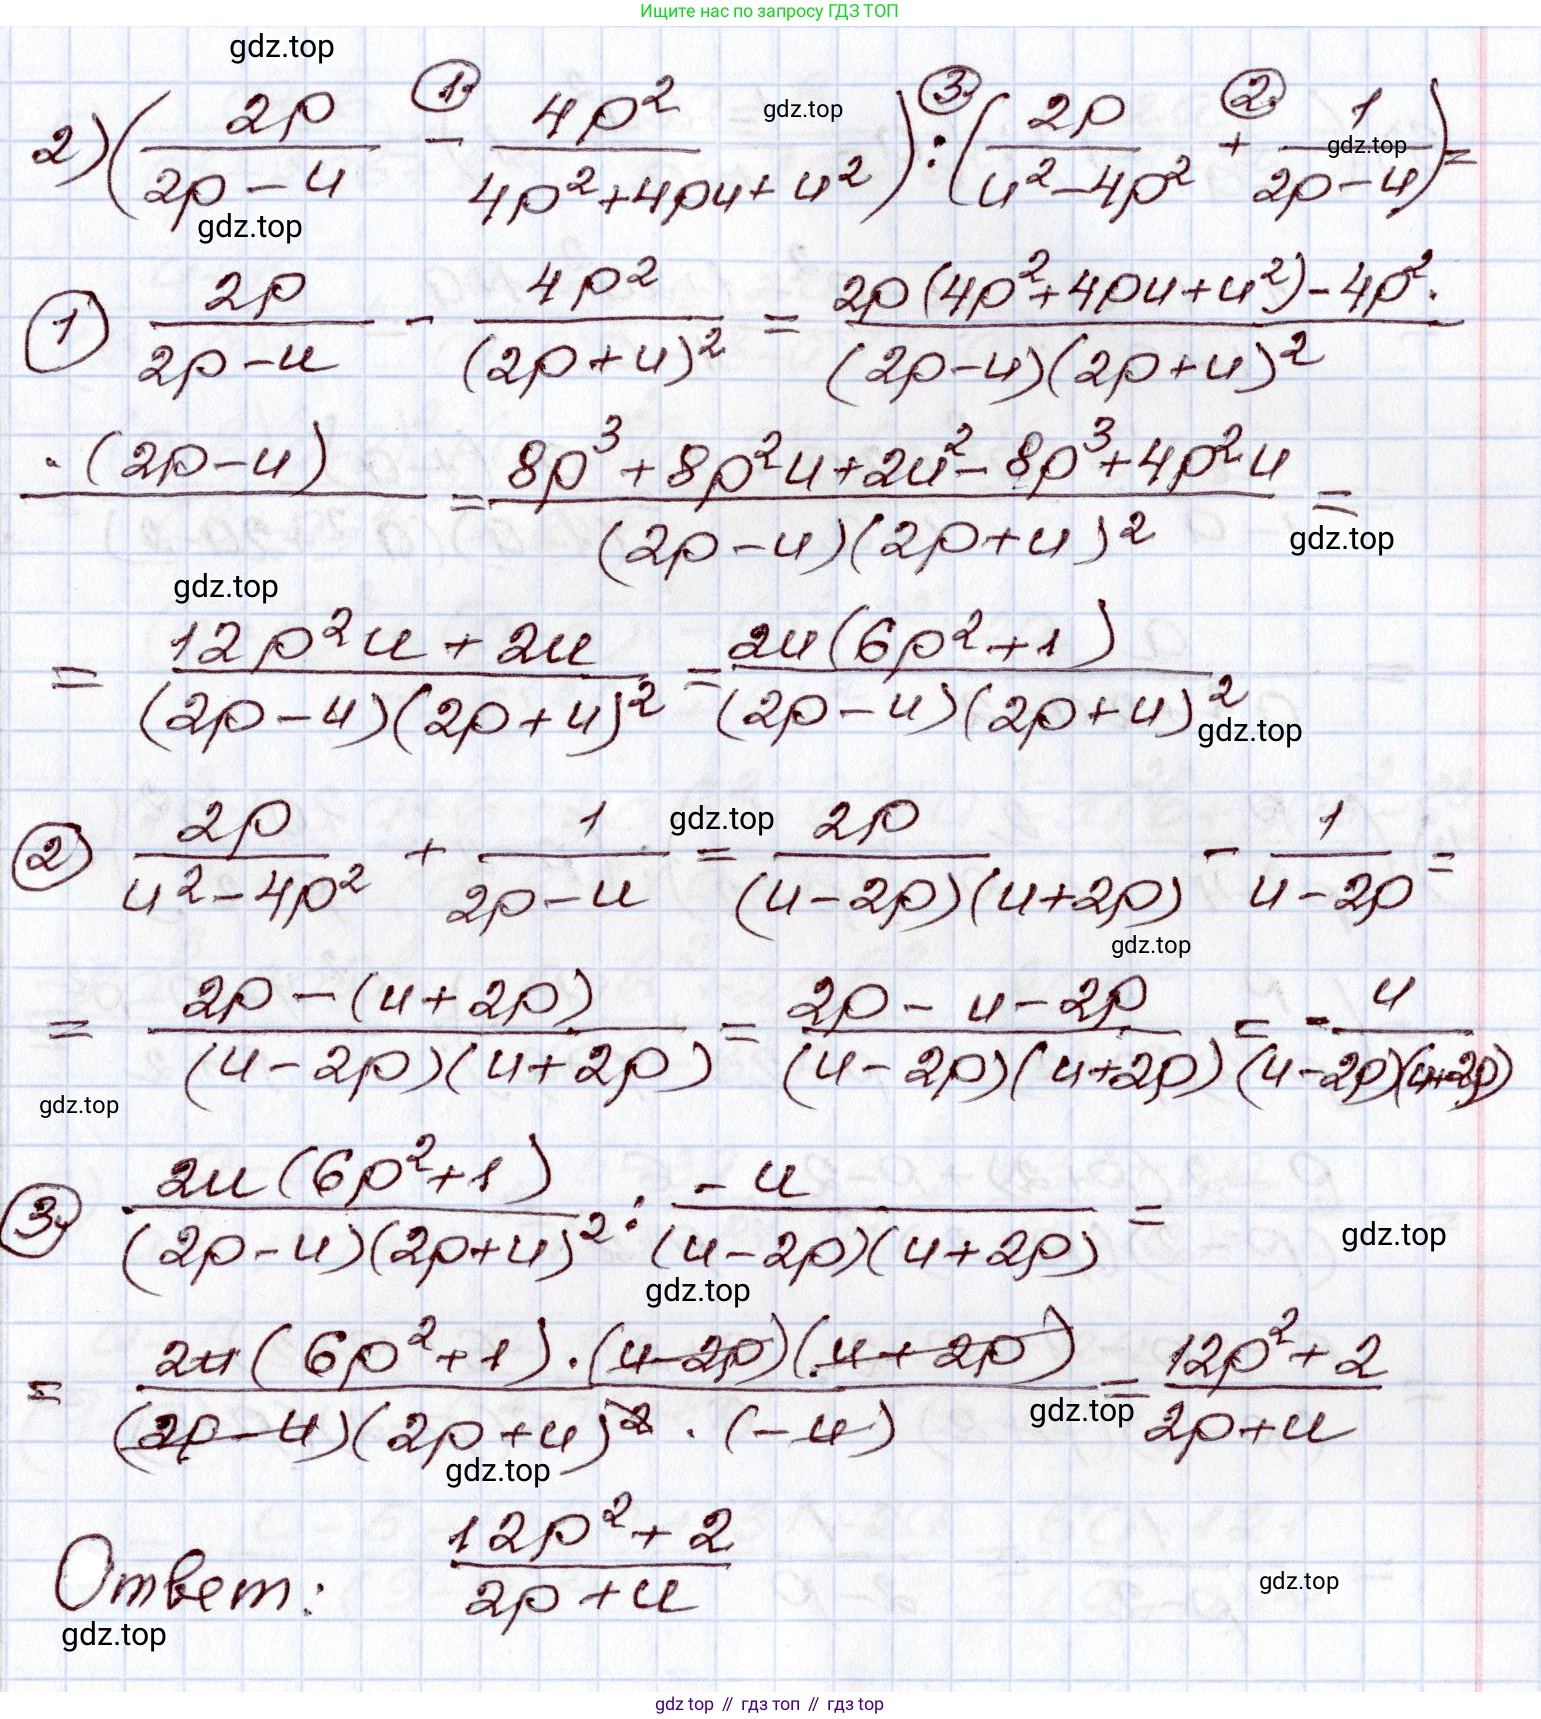 Ищите нас по запросу ГДЗ ТОП
gdz.top
2) (2p/(2p-u) - 4p²/(4p²+4pu+u²)) : (2p/(u²-4p²) + 1/(2p-u)) =
① ③ ②
gdz.top
gdz.top
gdz.top
① 2p/(2p-u) - 4p²/(2p+u)² = (2p(4p²+4pu+u²)-4p²·)/((2p-u)(2p+u)²)
·(2p-u) = (8p³+8p²u+2u²-8p³+4p²u)/((2p-u)(2p+u)²) =
gdz.top
gdz.top
= (12p²u+2u)/((2p-u)(2p+u)²) = 2u(6p²+1)/((2p-u)(2p+u)²)
gdz.top
② 2p/(u²-4p²) + 1/(2p-u) = 2p/((u-2p)(u+2p)) - 1/(u-2p) =
gdz.top
gdz.top
= (2p-(u+2p))/((u-2p)(u+2p)) = (2p-u-2p)/((u-2p)(u+2p)) = - u/((u-2p)(u+2p))
gdz.top
③ 2u(6p²+1)/((2p-u)(2p+u)²) : -u/((u-2p)(u+2p)) =
gdz.top
gdz.top
= 2u(6p²+1)·(u-2p)(u+2p)/((2p-u)(2p+u)²·(-u)) = (12p²+2)/(2p+u)
gdz.top
gdz.top
Ответ: (12p²+2)/(2p+u)
gdz.top
gdz.top
gdz top // гдз топ // гдз top